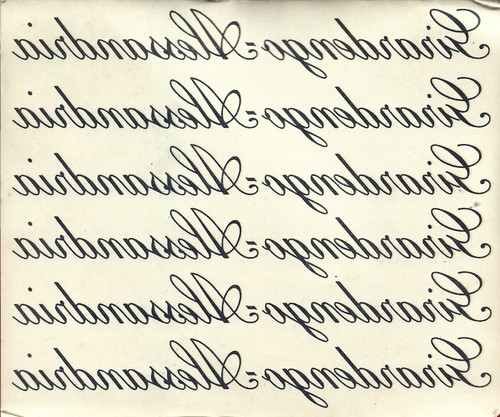 Girardengo=Alessandria
Girardengo=Alessandria
Girardengo=Alessandria
Girardengo=Alessandria
Girardengo=Alessandria
Girardengo=Alessandria